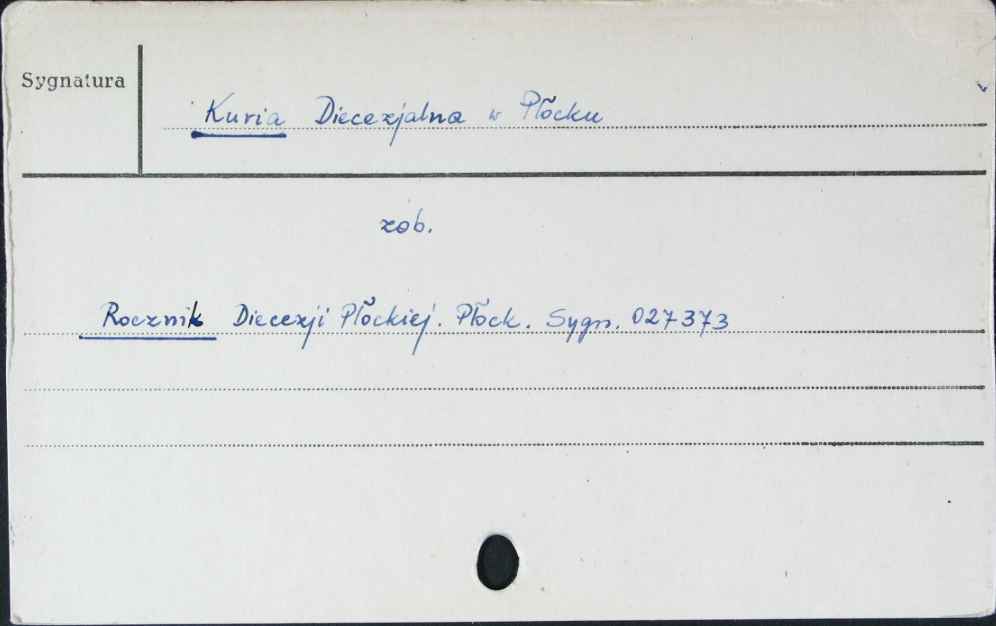 Sygnatura
Kuria Diecezjalna w Płocku
zob.
Rocznik Diecezji Płockiej. Płock. Sygn. 027373